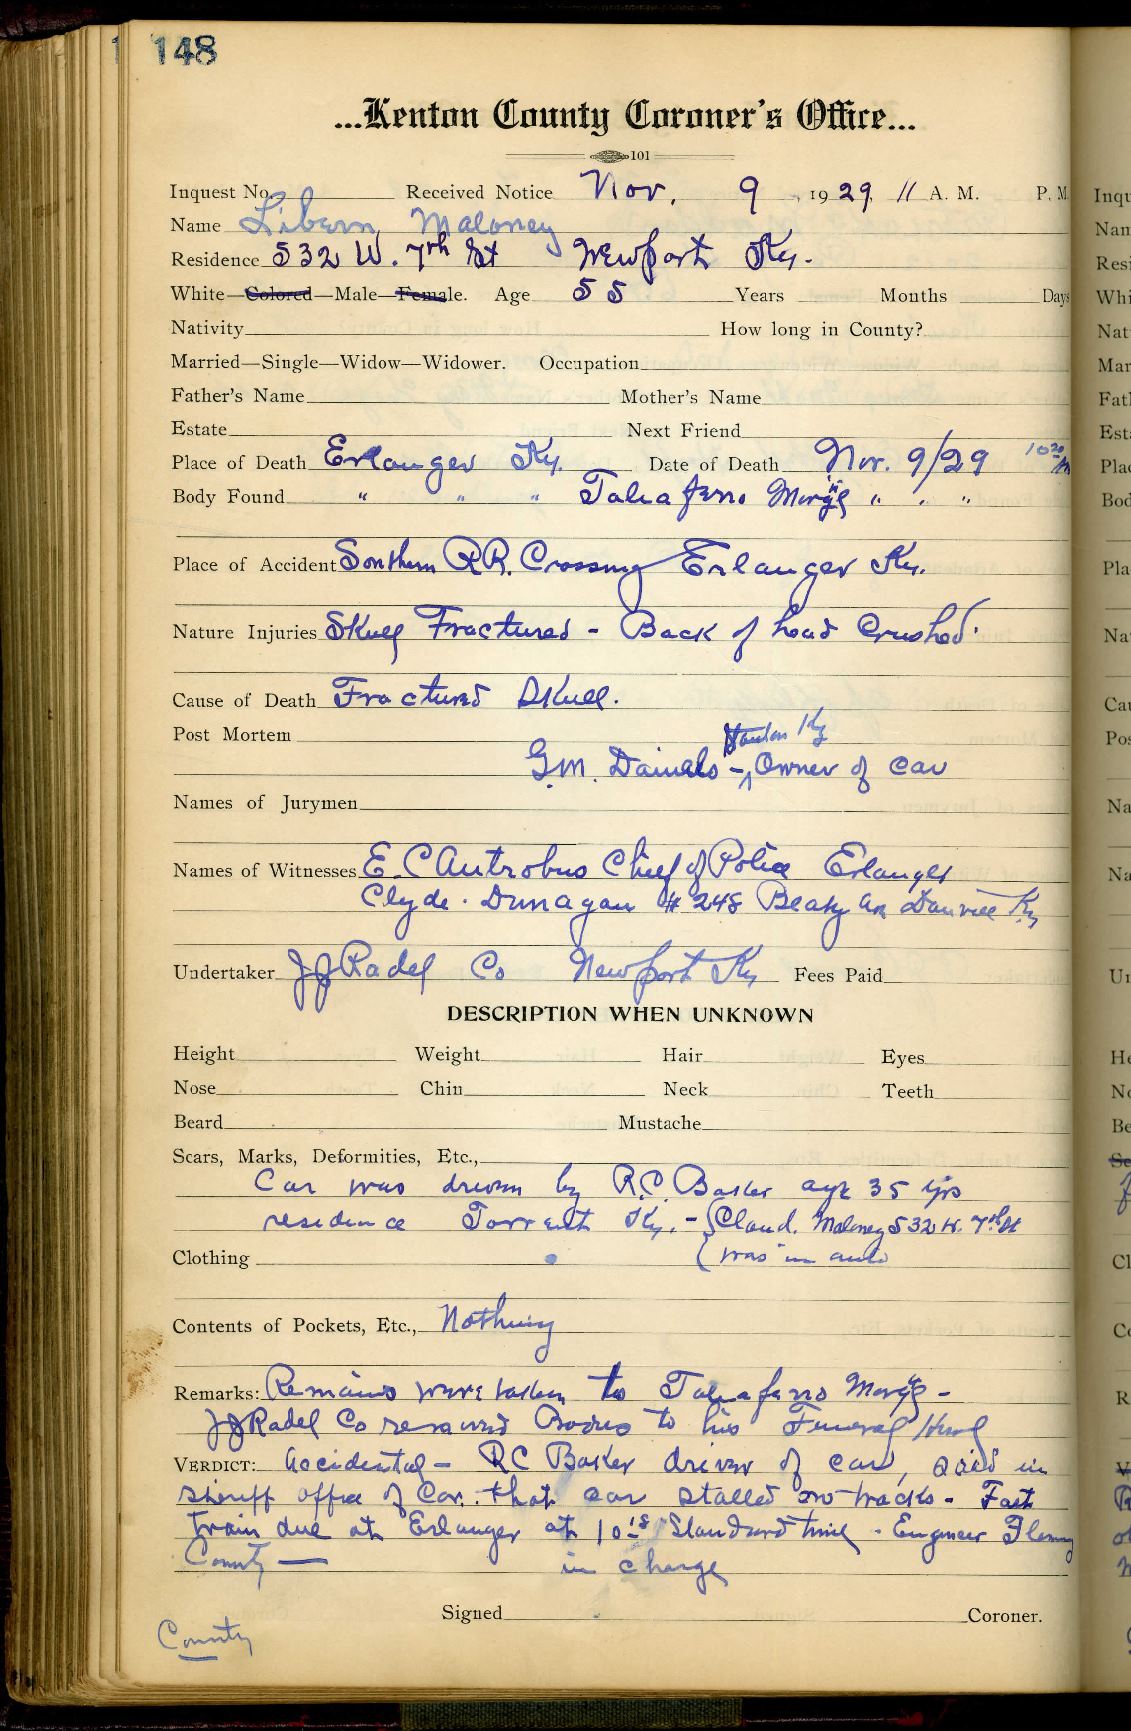 148
...Kenton County Coroner's Office...
101
Inquest No. Received Notice Nov. 9 1929. 11 A. M. P. M
Name Libern Maloney
Residence 532 W. 7th St Newport Ky.
White—Colored—Male—Female. Age 55 Years Months Days
Nativity How long in County?
Married—Single—Widow—Widower. Occupation
Father's Name Mother's Name
Estate Next Friend
Place of Death Erlanger Ky. Date of Death Nov. 9/29 10 20
Body Found " " " Taliaferro Morg " " "
Place of Accident Southern RR. Crossing Erlanger Ky.
Nature Injuries Skull Fractured - Back of head Crushed.
Cause of Death Fractured Skull.
Post Mortem
Stanton Ky
G.M. Daniels - Owner of car
Names of Jurymen
Names of Witnesses E. C Antrobus Chief of Police Erlanger
Clyde. Dunagan # 248 Ky
Undertaker JJ Radel Co Newport Ky Fees Paid
DESCRIPTION WHEN UNKNOWN
Height Weight Hair Eyes
Nose Chin Neck Teeth
Beard Mustache
Scars, Marks, Deformities, Etc.,
Car was driven by R.C. Baker age 35 yrs
residence Torrent Ky. - Claud. Maloney 532 W. 7th St
was in auto
Clothing
Contents of Pockets, Etc., Nothing
Remarks: Remains were taken to Taliaferro Morg -
JJ Radel Co removed Bodies to his Funeral
VERDICT: Accidental - RC Baker driver of car, said in
sheriff office of Cov. that car stalled on tracks - Fast
train due at Erlanger at 10 18 Standard time - Engineer
County — in charge
Signed Coroner.
County